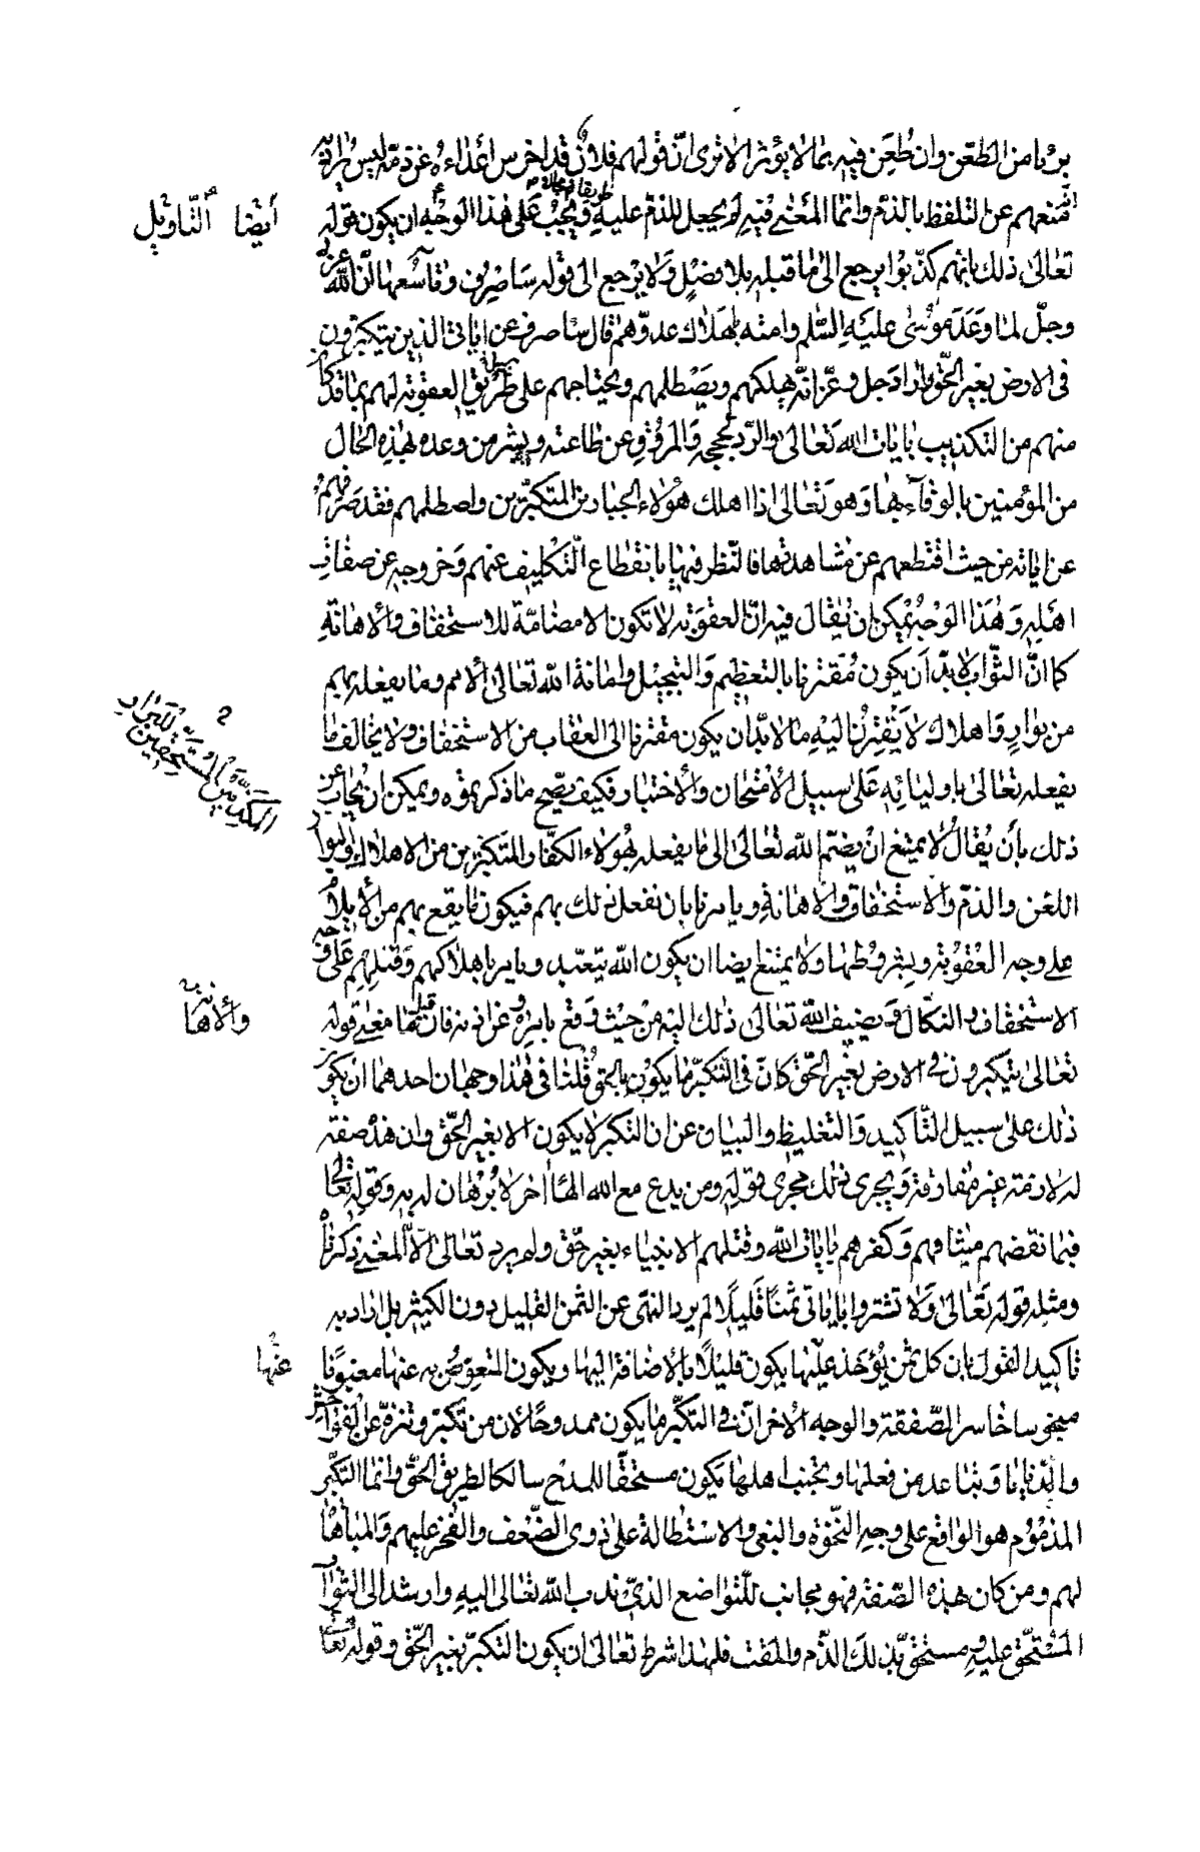 بريًا من الطعن وان طُعِن فيه بما لا يؤثر الا ترى انّ قولهم فلانٌ قد اخرس اعداءه عن ذمّه ليس يراد به
انه منعهم عن التلفظ بالذم وانما المعنى فيه انه لم يجعل للذم عليه طريقا ومجالا ويجب على هذا الوجه ان يكون قوله
أيضا التأويل
تعالى ذلك بانهم كذّبوا يرجع الى ما قبله بلا فصلٍ ولا يرجع الى قوله ساصرف وتاسعها انّ الله عزّ
وجلّ لما وعد موسى عليه السّلم وامته بهلاك عدوّهم قال ساصرف عن اياتى الذين يتكبّرون
فى الارض بغير الحقّ واراد جل وعزّ انّه يهلكهم ويصطلمهم ويجتاحهم على طريق العقوبة لهم بما قد كان
منهم من التكذيب بايات الله تعالى والرّد لحججه والمروق عن طاعته ويبشر من وعده بهذه الحال
من المؤمنين بالوفآء بها وهو تعالى اذا اهلك هؤلاء الجبارين المتكبّرين واصطلمهم فقد صرفهم
عن اياته من حيث اقتطعهم عن مشاهدتها والنّظر فيها بانقطاع التّكليف عنهم وخروجهم عن صفات
اهله وهذا الوجه يمكن ان يقال فيه انّ العقوبة لا تكون الا مضامّة للاستخفاف والاهانة
كما انّ الثّواب لا بدّ ان يكون مقترنا بالتعظيم والتبجيل واماتة الله تعالى الامم وما يفعله بهم
من بوارٍ واهلاك لا يقترن اليه ما لا بدّ ان يكون مقترنا الى العقاب من الاستخفاف ولا يخالف ما
يفعله تعالى باوليائه على سبيل الامتحان والاختبار فكيف يصّح ما ذكرتموه ويمكن ان يجاب عن
ذلك بأن يقال لا يمتنع ان يضمّ الله تعالى الى ما يفعله بهؤلاء الكفّار المتكبّرين من الاهلاك والبوار
اللعن والذمّ والاستخفاف والاهانة ويامرنا بان نفعل ذلك بهم فيكون ما يقع بهم من الايلام
على وجه العقوبة وبشروطها ولا يمتنع ايضا ان يكون الله يتعبّد ويامر باهلاكهم وقتلهم على وجه
الاستخفاف والنكال ويضيف الله تعالى ذلك اليه من حيث وقع بامره وعن اذنه فان قيل فما معنى قوله
والاهانة
تعالى يتكبرون فى الارض بغير الحّق كانّ فى التكبّر ما يكون بالحق قلنا فى هذا وجهان احدهما ان يكون
ذلك على سبيل التّأكيد والتغليظ والبيان عن ان التكبر لا يكون الا بغير الحّق وان هذه صفته
له لازمة غير مفارقة ويجرى ذلك مجرى قوله ومن يدع مع الله الهًا اخر لا برهان له به وقوله تعالى
فبما نقضهم ميثاقهم وكفرهم بايات الله وقتلهم الانبياء بغير حّق ولم يرد تعالى الّا المعنى ذكرناه
ومثله قوله تعالى ولا تشتروا باياتى ثمنًا قليلًا لم يرد النهى عن الثمن القليل دون الكثير بل اراد به
تاكيد القول بان كل ثمن يؤخذ عليها يكون قليلًا بالاضافة اليها ويكون المتعوّض به عنها مغبونًا
عنها
مبخوسا خاسر الصّفقة والوجه الاخر انّ فى التكبّر ما يكون ممدوحًا لان من تكبّر وتنزّه عن الفواحش
والدّنايا وتباعد من فعلها وتجنب اهلها يكون مستحقًا للمدح سالكا لطريق الحّق وانما التكبّر
المذموم هو الواقع على وجه النّخوة والبغى والاستطالة على ذوى الضّعف والفخر عليهم والمباهاة
لهم ومن كان بهذه الصّفة فهو مجانب للتواضع الذى ندب الله تعالى اليه وارشد الى الثواب
المستحّق عليه ومستحّق بذلك الذّم والمقت فلهذا شرط تعالى ان يكون التكبّر بغير الحّق وقوله تعالى